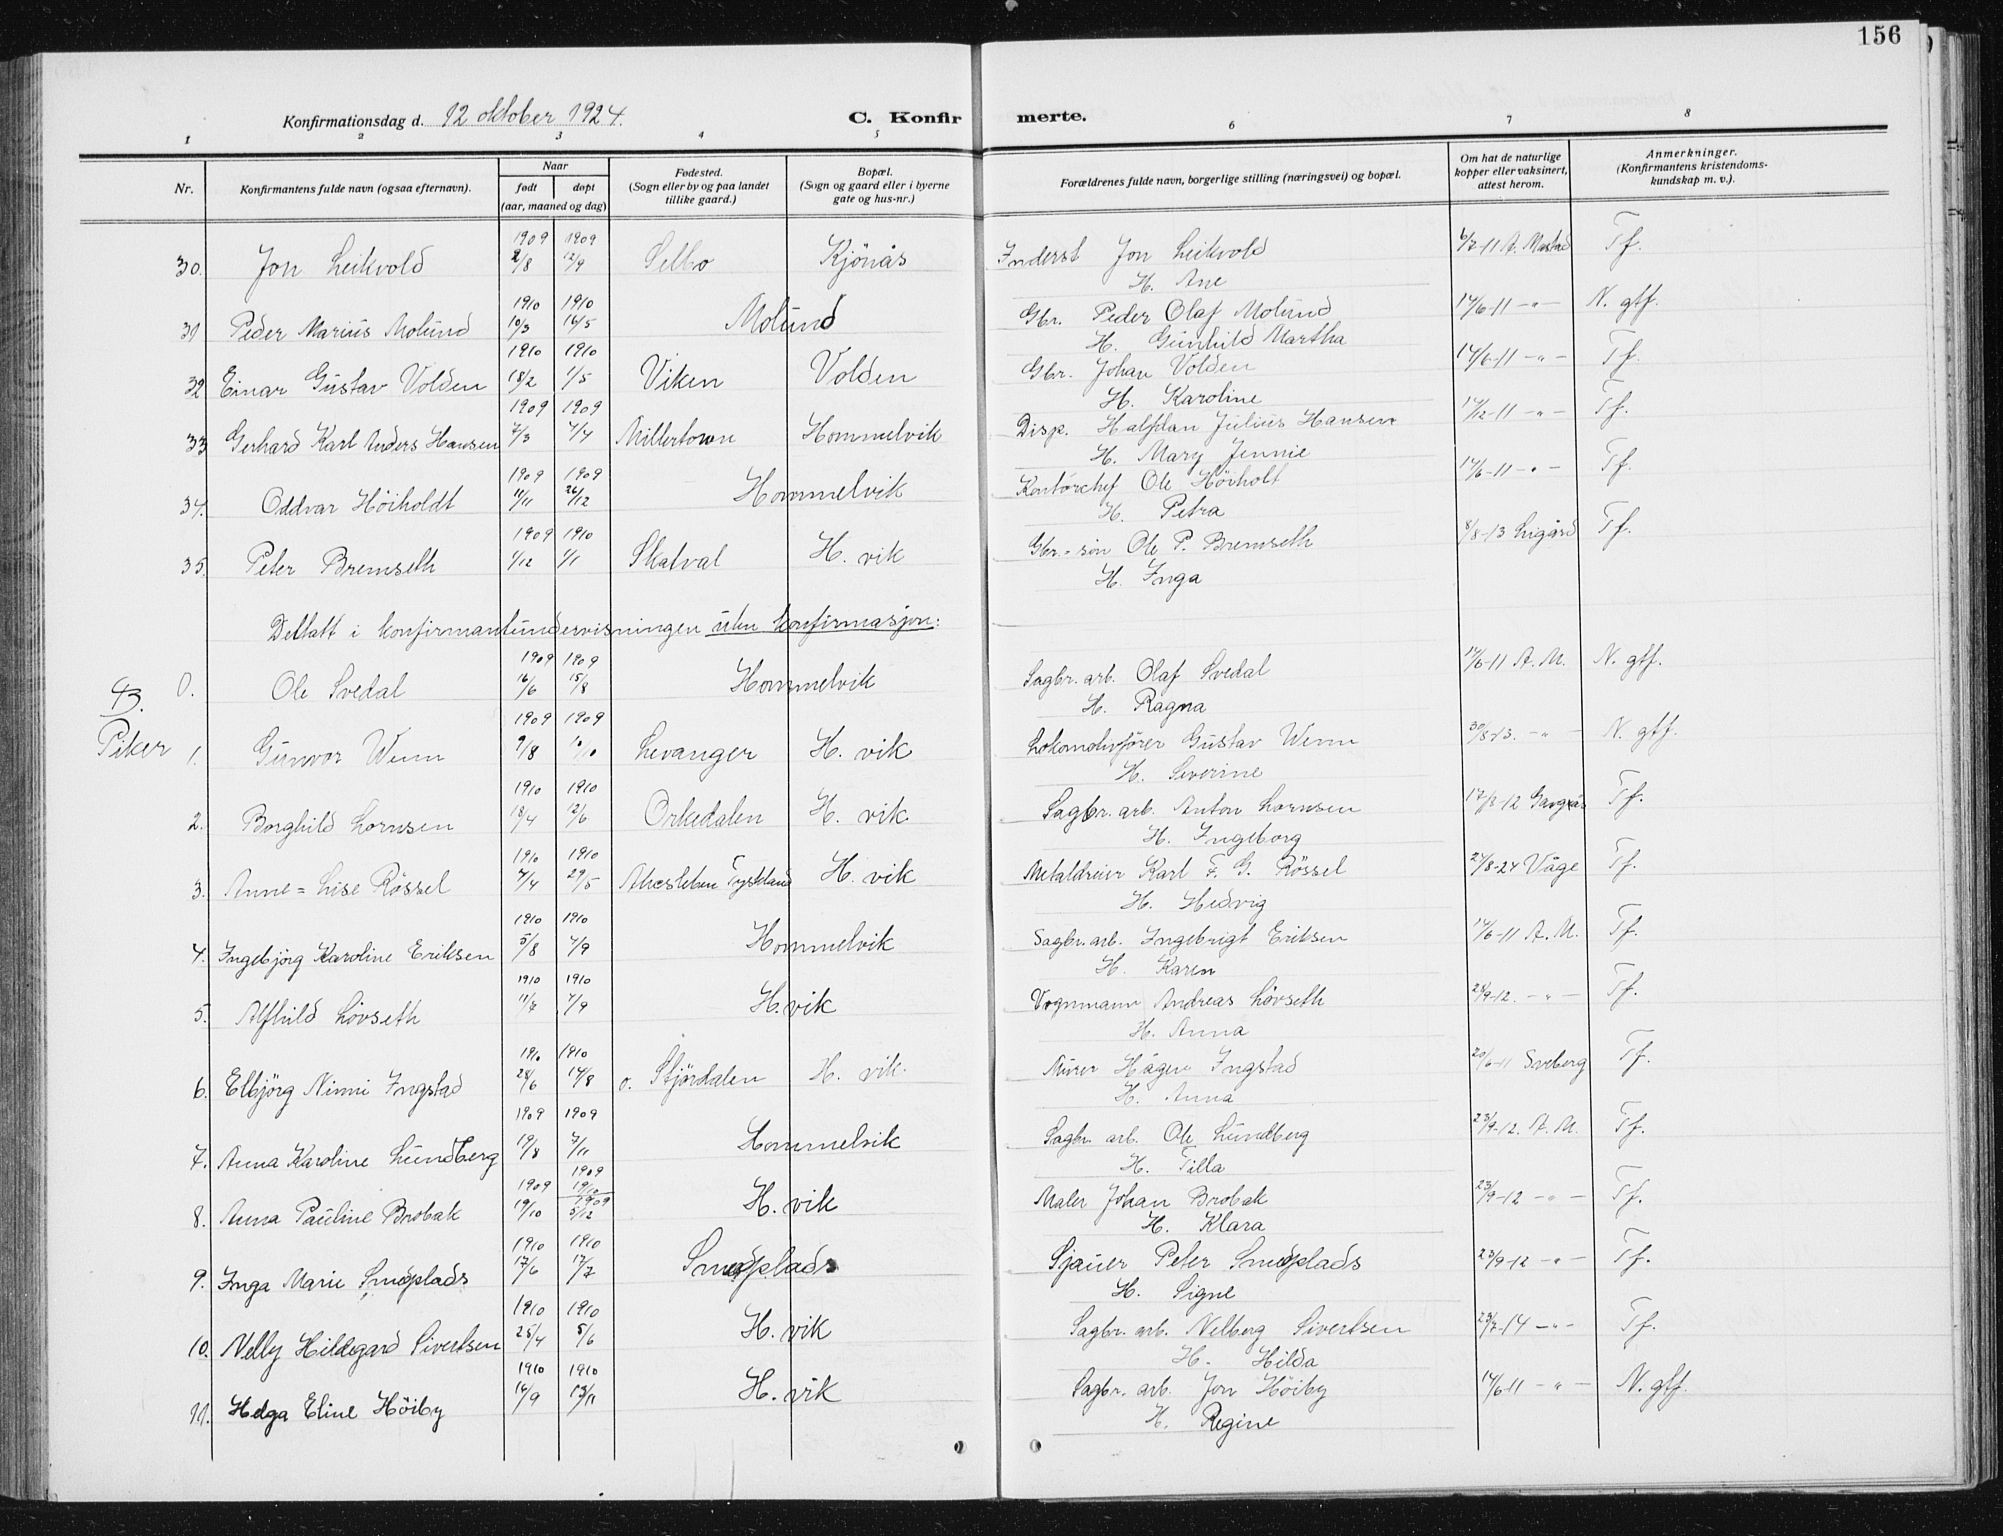 156
Konfirmationsdag d. 12 oktober 1924.
C. Konfirmerte.
1 2 3 4 5 6 7 8
Nr. Konfirmantens fulde navn (ogsaa efternavn). Naar født døpt (aar, maaned og dag) Fødested. (Sogn eller by og paa landet tillike gaard.) Bopæl. (Sogn og gaard eller i byerne gate og hus-nr.) Forældrenes fulde navn, borgerlige stilling (næringsvei) og bopæl. Om hat de naturlige kopper eller vaksinert, attest herom. Anmerkninger. (Konfirmantens kristendoms-kundskap m. v.).
30. Jon Leikvold 1909 2/8 1909 12/9 Selbo Kjönås Inderst Jon Leikvold 6/7-11 A. Mastad Tf.
H. Ane
31 Peder Marius Molund 1910 10/3 1910 16/5 Molund Gbr. Peder Olaf Molund 14/6-11 -"- N. gtf.
H. Gunhild Martha
32 Einar Gustav Volden 1910 18/2 1910 1/5 Viken Volden Gbr. Johan Volden 14/6-11 -"- Tf.
H. Karoline
33 Gerhard Karl Anders Hansen 1909 7/3 1909 4/4 Millertown Hommelvik Disp. Halfdan Julius Hansen 14/12-11 -"- Tf.
H. Mary Jennie
34. Oddvar Höiholdt 1909 11/11 1909 26/12 Hommelvik Kontorchef Ole Höiholt 14/6-11 -"- Tf.
H. Petra
35. Peter Bremseth 1909 1/12 1910 1/1 Skatval H. vik Gbr.-sön Ole P. Bremseth 8/8-13 Ligård Tf.
H. Inga
Deltatt i konfirmantundervisningen uten konfirmasjon:
0. Ole Svedal 1909 16/6 1909 15/8 Hommelvik Sagbr. arb. Olaf Svedal 14/6-11 A. M. N. gtf.
H. Ragna
43.
Piker
1. Gunvor Wenn 1909 9/8 1909 10/10 Levanger H. vik Lokomotivförer Gustav Wenn 30/8-13. -"- N. gtf.
H. Severine
2. Borghild Lornsen 1910 18/4 1910 12/6 Orkedalen H. vik Sagbr. arb. Anton Lornsen 17/3-12 Tf.
H. Ingeborg
3. Anne=Lise Rössel 1910 4/4 1910 29/5 Tyskland H. vik Metaldreier Karl F. G. Rössel 27/8-24 Våge Tf.
H. Hedvig
4. Ingebjörg Karoline Eriksen 1910 5/8 1910 4/9 Hommelvik Sagbr. arb. Ingebrigt Eriksen 14/6-11 A. M. Tf.
H. Karen
5. Alfhild Lövseth 1910 11/7 1910 4/9 H. vik Vognmann Andreas Lövseth 28/9-12. -"- Tf.
H. Anna
6. Elbjörg Ninni Ingstad 1910 28/6 1910 14/8 o. Stjördalen H. vik. Murer Hågen Ingstad 20/6-11 Sveberg Tf.
H. Anna
7. Anna Karoline Lundberg 1909 19/8 1909 7/11 Hommelvik Sagbr. arb. Ole Lundberg 23/9-12. A. M. Tf.
H. Tilla
8. Anna Pauline Brobak 1909 19/10 1909 1910 1909 5/12 H. vik Maler Johan Brobak 23/9-12 -"- Tf.
H. Klara
9. Inga Marie Smedplads 1910 17/6 1910 17/7 Smedplads Sjauer Peter Smedplads 23/9-12 -"- Tf.
H. Signe
10. Nelly Hildegard Sivertsen 1910 25/4 1910 5/6 H. vik Sagbr. arb. Nelberg Sivertsen 23/7-14 -"- Tf.
H. Hilda
11. Helga Eline Höiby 1910 16/9 1910 13/11 H. vik Sagbr. arb. Jon Höiby 14/6-11 -"- N. gtf.
H. Regine